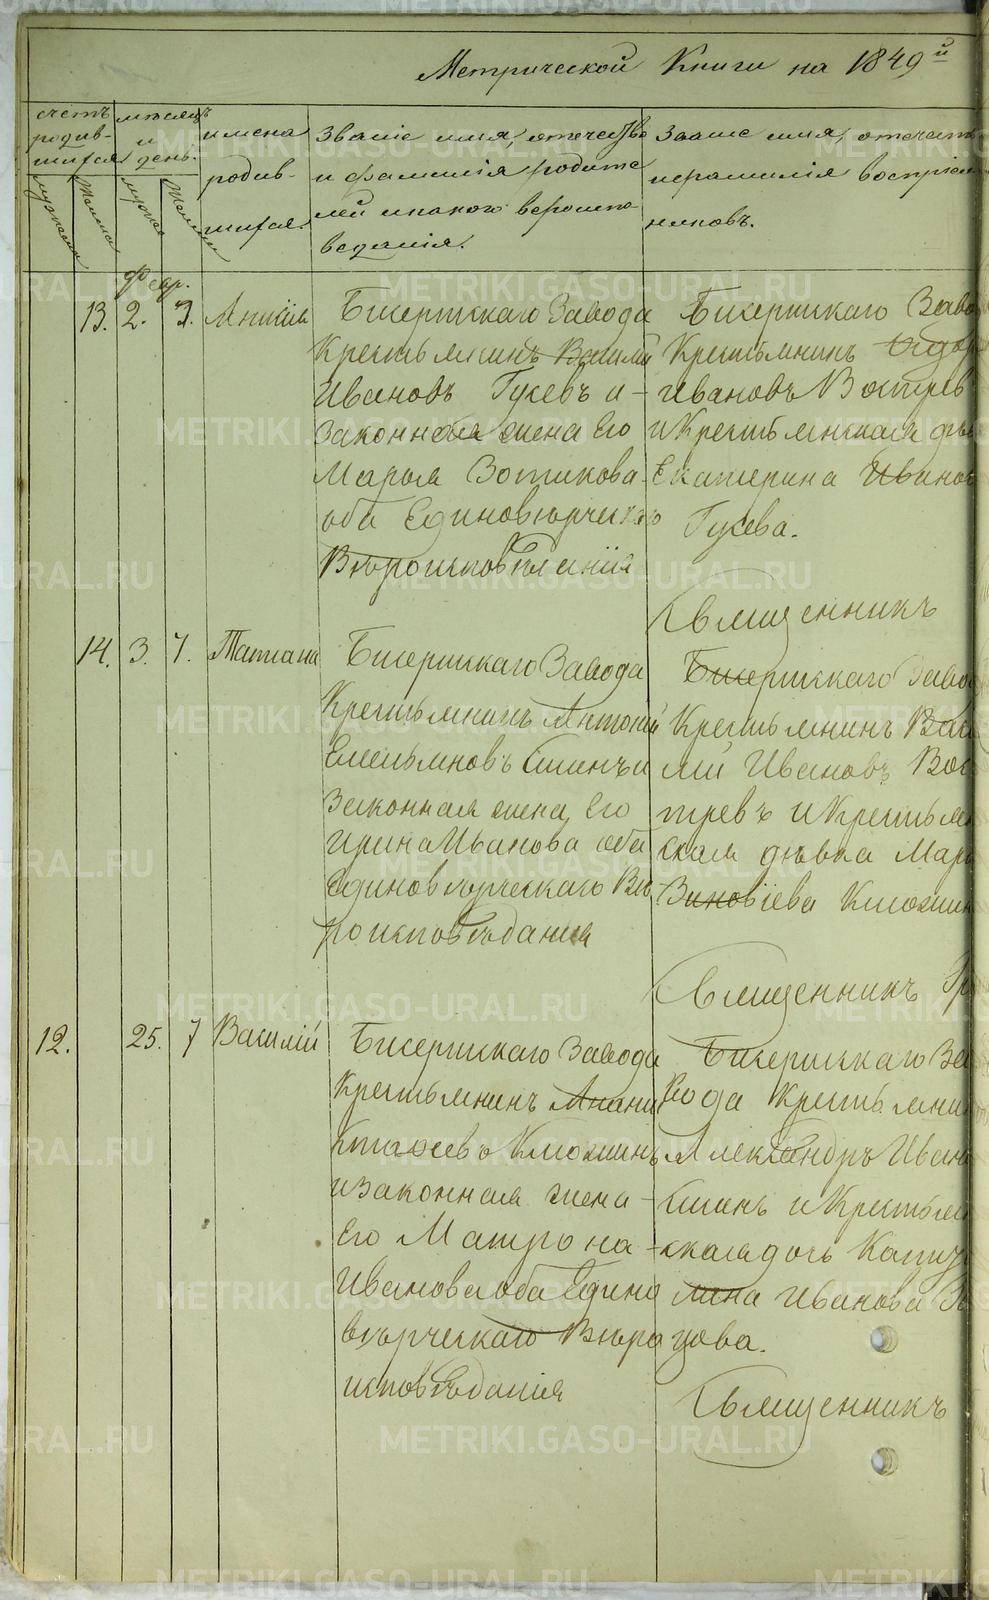 Метрической Книги на 1849й
счетъ родившихся
мужеска
женска
месяцъ и день
имена родившихся.
Званіе имя, отечество и фамилія родителей и какого вероисповеданія.
Званіе имя, отечеств и фамилія воспріем никовъ.
Февр.
13. 2. 3.
Бисертскаго Завода
Крестьянинъ Василій
Ивановъ Гусевъ и
Законная жена Его
Марья Зотикова
оба Единоверческ
Вѣроисповѣданія
Бисертскаго Заво
Крестьянинъ
Ивановъ Вострев
и Крестьянская дѣв
Екатерина Иванов
Гусева.
Священникъ
14. 3. 7. Татиана
Бисертскаго Завода
Крестьянинъ Антоній
Емельяновъ и
Законная жена Его
Ирина Иванова оба
Единовѣрческаго Вѣ
роисповѣданія
Бисертскаго Завод
Крестьянинъ Васи
лій Ивановъ Вос
тревъ и Крестьян
ская дѣвка Мар
Зиновіева Клюкин
Священникъ Гр
12. 25. 7 Василій
Бисертскаго Завода
Крестьянинъ Анани
Клюкинъ
и Законная жена
Его Матрона
Иванова оба Едино
вѣрческаго Вѣро
исповѣданія
Бисертскаго За
вода Крестьянин
Александръ Иван
и Крестьян
ская дочь Капит
лина Иванова
зова.
Священникъ
METRIKI.GASO-URAL.RU